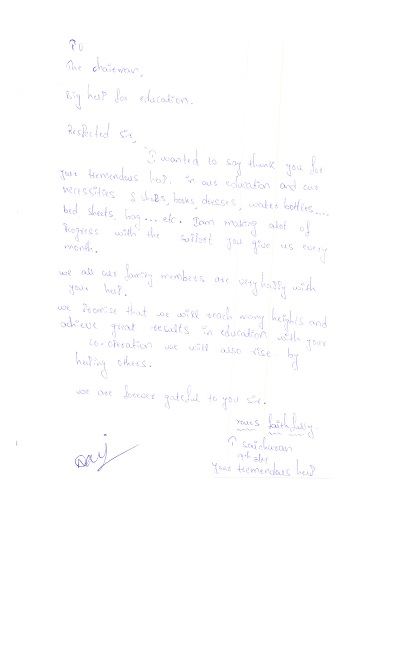 To
The chairman.
Big help for education.
Respected sir,
I wanted to say thank you for
your tremendous help. in our education and our
necessities shoes, books, dresses, water bottles....
bed sheets, bag ... etc. Iam making alot of
Progress with the support you give us every
month.
we all our family members are very happy with
your help.
we Promise that we will reach many heights and
achieve great results in education with your
co-operation we will also rise by
helping others.
we are forever grateful to you sir.
yours faithfully
T saicharan
9th
your tremendous help
Sai